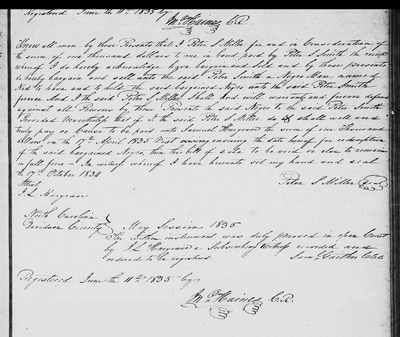 Registered June the 11th 1835 by
M. P. Haines C.R.
Know all men by these Presents that I Peter S Miller for and in Consideration of
the sum of one thousand dollars to me in hand paid by Peter Smith the receipt
whereof I do hereby acknowledge bargain and sold and by these presents
do hereby bargain and sell unto the said Peter Smith a Negro Man named
Ned to have and to hold the said bargained Negro unto the said Peter Smith
forever And I the said Peter S Miller shall and will warrant and forever defend
against all Persons by these Presents the said Negro to the said Peter Smith
Provided Nevertheless that if I the said Peter S Miller do & shall well and
truly pay or Cause to be paid unto Samuel Hargrave the sum of one Thousand
dollars on the 17th April 1835 Next ensuing the date hereof for redemption
of the said bargained Negro, then this bill of Sale to be void or else to remain
in full force In witness whereof I have hereunto set my hand and seal
the 17th October 1834
Peter S Miller Seal
Attest
J. L. Hargrave
North Carolina
Davidson County May Session 1835
The within instrument was duly proved in open Court
by J L Hargrave a Subscribing Witness recorded and
ordered to be registered
Registered June the 11th 1835 by
M. P. Haines C.R.